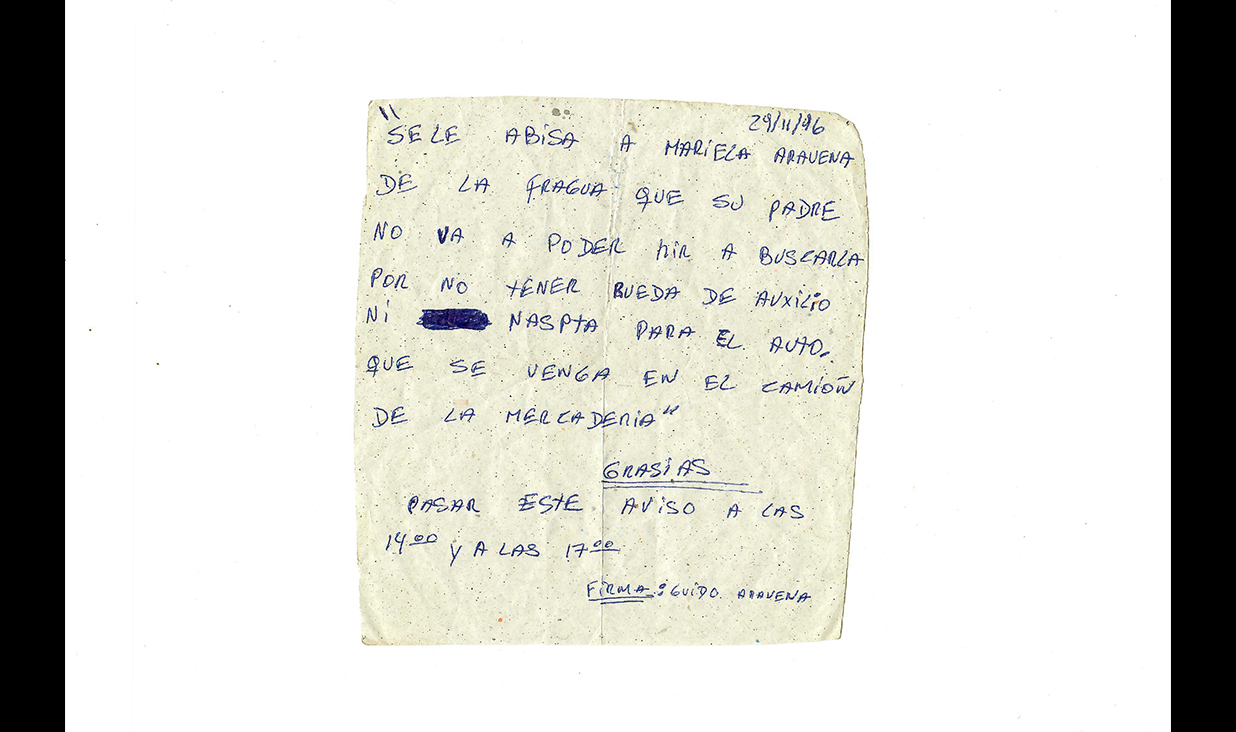 29/11/96
"SE LE ABISA A MARIELA ARAVENA
DE LA FRAGUA QUE SU PADRE
NO VA A PODER HIR A BUSCARLA
POR NO TENER RUEDA DE AUXILIO
NI NASPTA PARA EL AUTO.
QUE SE VENGA EN EL CAMIÓN
DE LA MERCADERIA"
GRASIAS
PASAR ESTE AVISO A LAS
14 00 Y A LAS 17 00
FIRMA: GUIDO ARAVENA